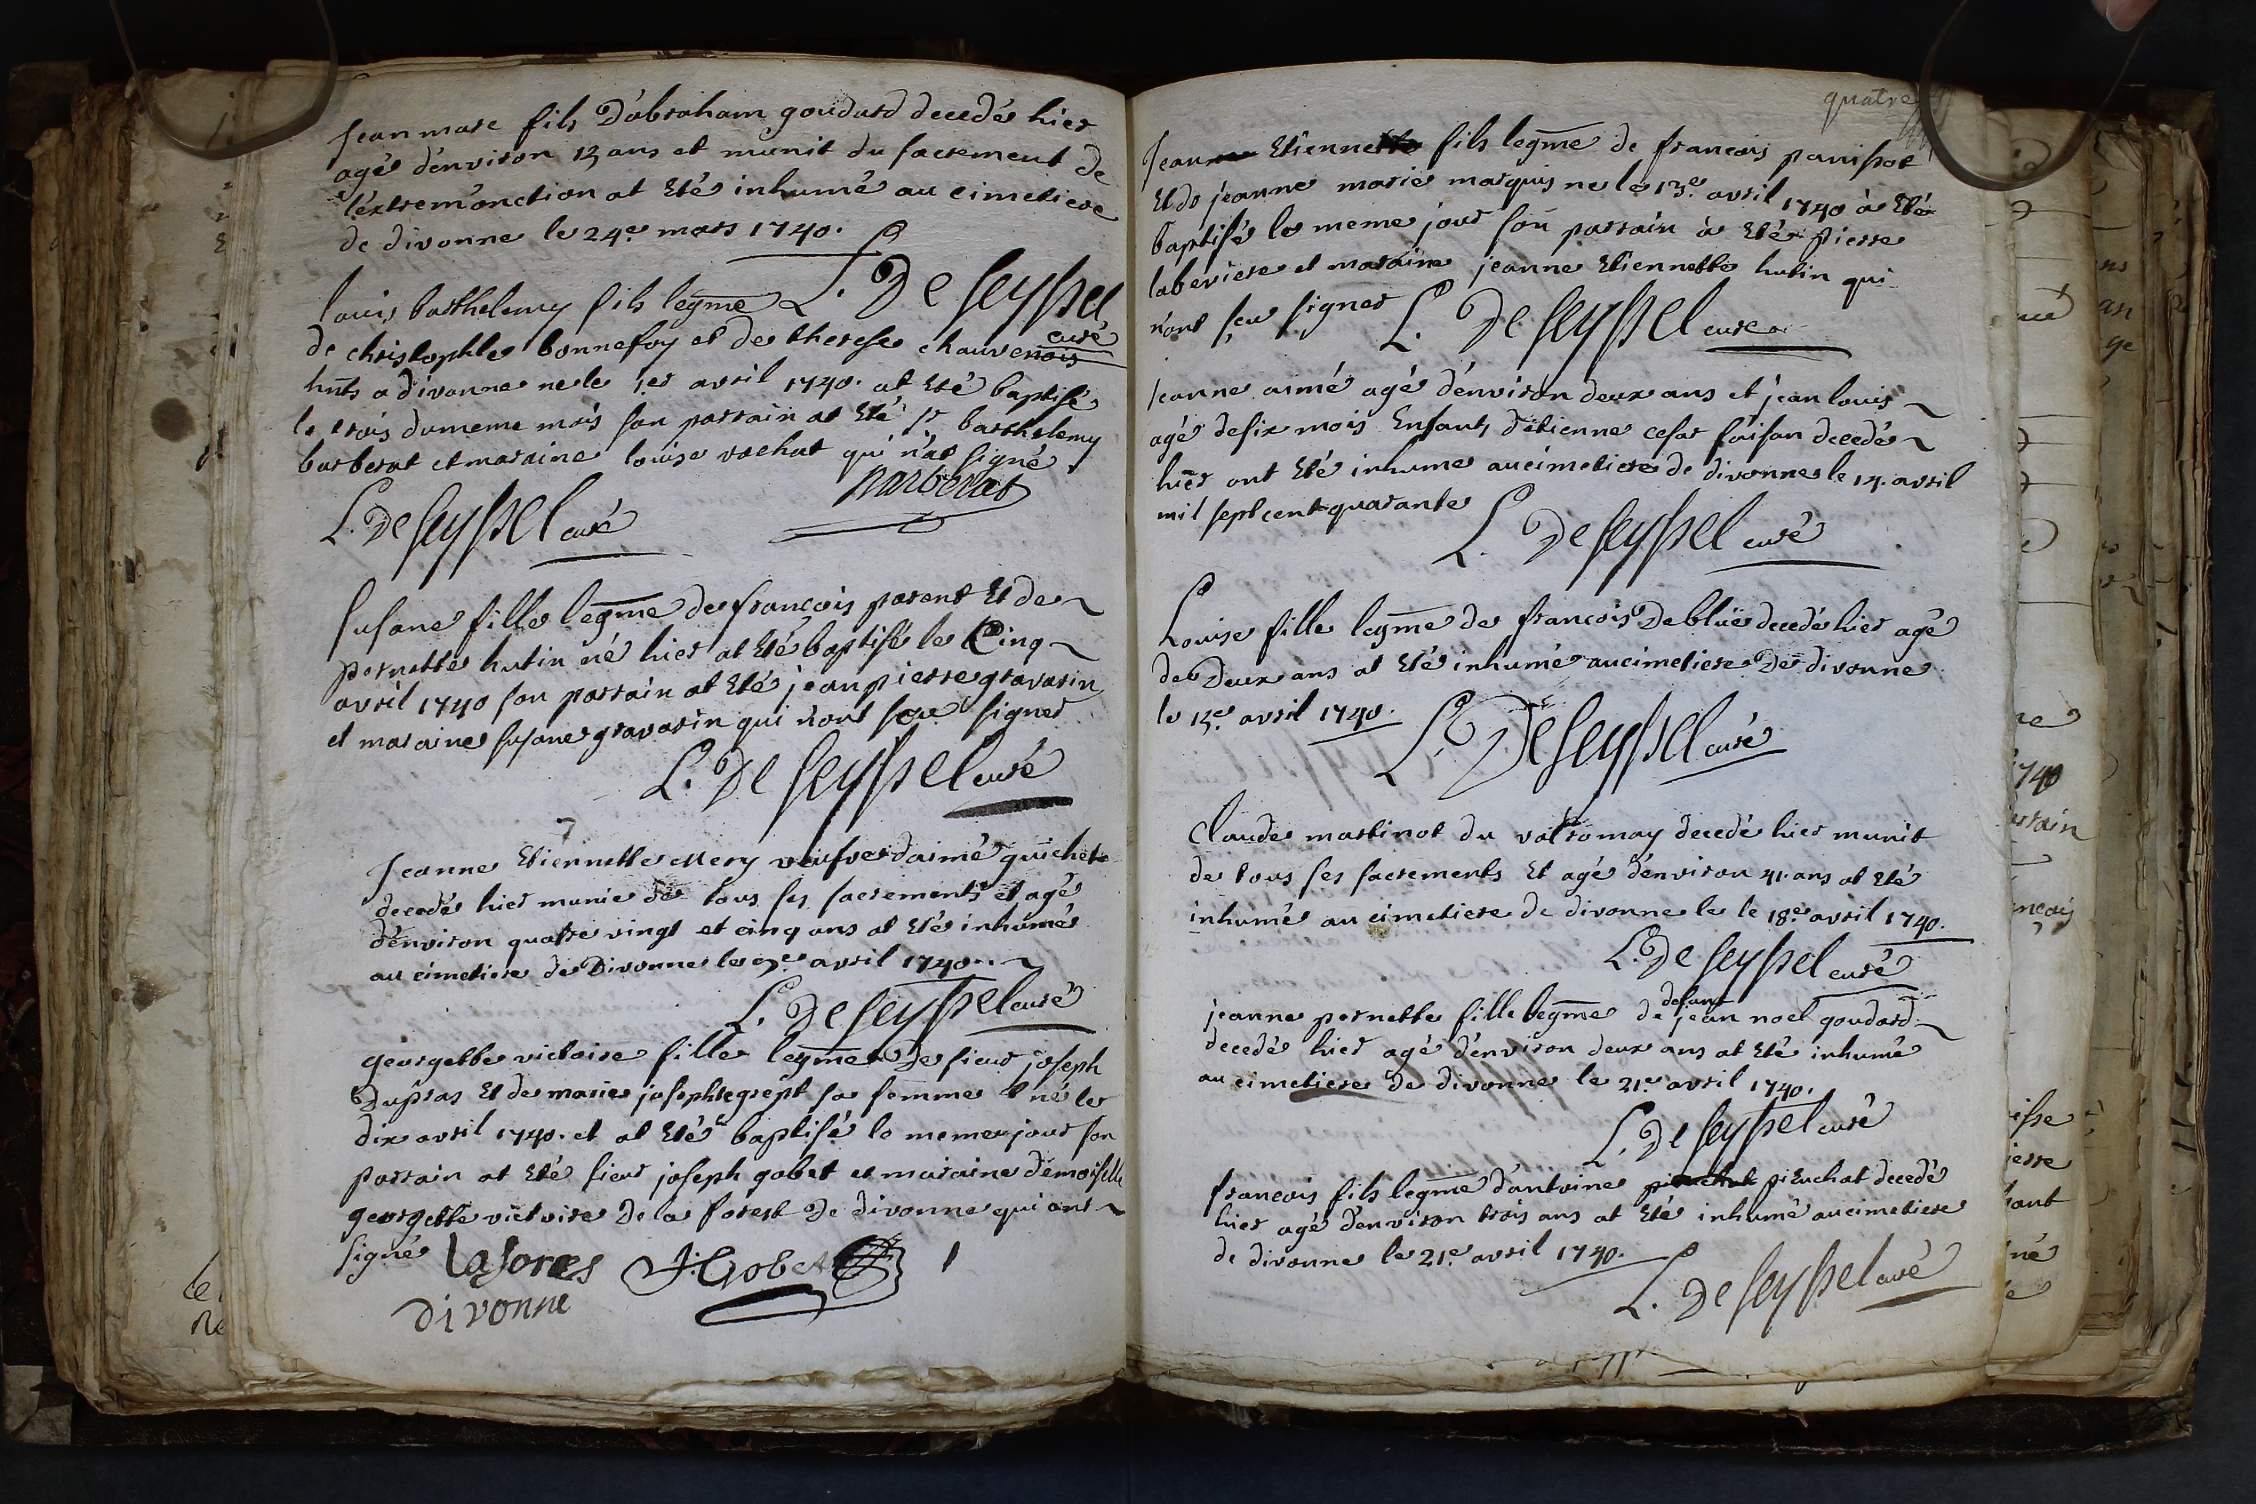 Jean marc fils D'abraham goudard decedé hier
agé d'environ 13 ans et munit du sacrement de
l'extrem'onction at Eté inhumé au cimetiere
de divonne le 24e mars 1740.
L. De Seyssel
curé
louis barthelemy fils legme
de christophle bonnefoy et de therese chauvenois
hnts a divonne ne le 1er avril 1740. at Eté baptisé
le trois du meme mois son parrain at Eté Sr barthelemy
barberat et maraine louise vachat qui n'at signé
Barberat
L. De Seyssel curé
Susane fille legme de francois parent Et de
pernette hutin né hier at Eté baptisé le Cinq
avril 1740 son parrain at Eté jean pierre gravarin
et maraine susane gravarin qui n'ont sçeu signer
L. De Seyssel curé
Jeanne Etiennette Mery veufve d'aimé guichet
decedé hier munie de tous ses sacrements et agé
d'environ quatre vingt et cinq ans at Eté inhumé
au cimetiere de Divonne le 7e avril 1740
L. De Seyssel curé
georgette victoire fille legme De sieur joseph
Dupras Et de marie josephte grept sa femme né le
dix avril 1740. et at Eté baptisé le meme jour son
parrain at Eté sieur joseph gobet et maraine demoiselle
georgette victoire De la forest De divonne qui ont
signé lafores J: Gobet
divonne
quatre
Jean Etienne fils legme de francois panissot
Et de jeanne marie marquis ne le 13e avril 1740 à Eté
baptisé le meme jour son parrain à Eté pierre
laberiere et maraine jeanne Etiennette hutin qui
n'ont sçeu signer L. De Seyssel curé
Jeanne aimé agé d'environ deux ans et jean louis
agé de six mois Enfants d'etienne cesar faisan decedé
hier ont Eté inhume au cimetiere de divonne le 14. avril
mil sept cent quarante
L. De Seyssel curé
Louise fille legme de francois De blüe decedé hier agé
de Deux ans at Eté inhumé au cimetiere De divonne
le 15e avril 1740.
L. De Seyssel curé
Claude martinot du valromay decedé hier munit
de tous ses sacrements Et agé d'environ 41. ans at Eté
inhumé au cimetiere de divonne le le 18e avril 1740.
L. De Seyssel curé
defunt
jeanne pernette fille legme de jean noel goudard
decedé hier agé d'environ deux ans at Eté inhumé
au cimetiere de divonne le 21e avril 1740.
L. De Seyssel curé
francois fils legme d'antoine pieuchat decedé
hier agé d'environ trois ans at Eté inhumé au cimetiere
de divonne le 21e avril 1740.
L. De Seyssel curé